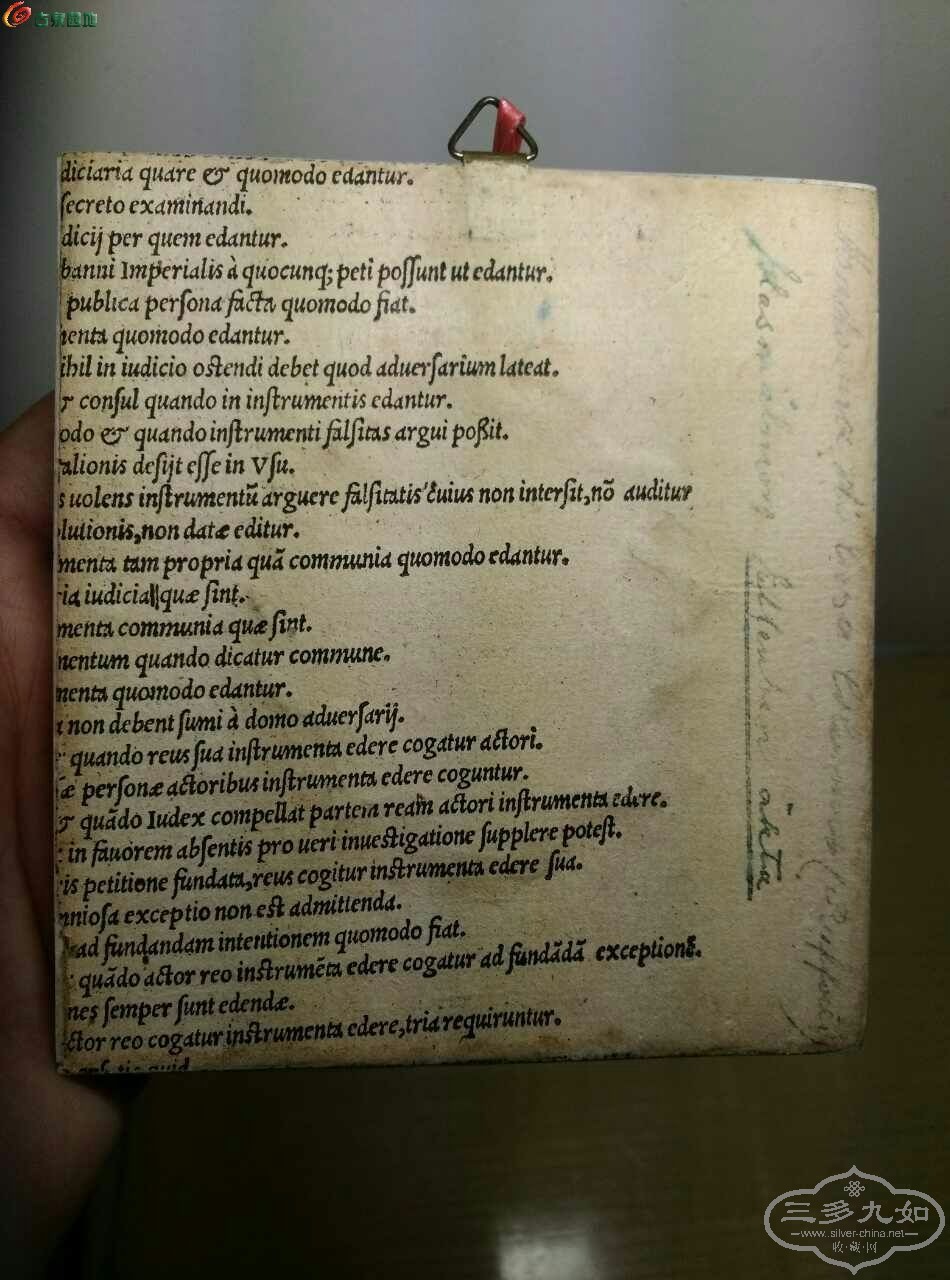 古泉园地
diciaria quare & quomodo edantur.
ſecreto examinandi.
dicij per quem edantur.
banni Imperialis à quocunq; peti poſſunt ut edantur.
publica perſona facta quomodo fiat.
enta quomodo edantur.
ihil in iudicio oſtendi debet quod aduerſarium lateat.
conſul quando in inſtrumentis edantur.
odo & quando inſtrumenti falſitas argui poßit.
alionis deſijt eſſe in Vſu.
s uolens inſtrumentũ arguere falſitatis cuius non interſit, nõ auditur
lutionis, non datæ editur.
menta tam propria quã communia quomodo edantur.
ia iudicia quæ ſint.
menta communia quæ ſint.
nentum quando dicatur commune.
nenta quomodo edantur.
non debent ſumi à domo aduerſarij.
quando reus ſua inſtrumenta edere cogatur actori.
æ perſonæ actoribus inſtrumenta edere coguntur.
quãdo Iudex compellat partem ream actori inſtrumenta edere.
in fauorem abſentis pro ueri inueſtigatione ſupplere poteſt.
is petitione fundata, reus cogitur inſtrumenta edere ſua.
nioſa exceptio non eſt admittenda.
ad fundandam intentionem quomodo fiat.
quãdo actor reo inſtrumẽta edere cogatur ad fundãdã exceptionẽ.
nes ſemper ſunt edendæ.
ctor reo cogatur inſtrumenta edere, tria requiruntur.
quid
äkta
三多九如
www.silver-china.net
收·藏·网